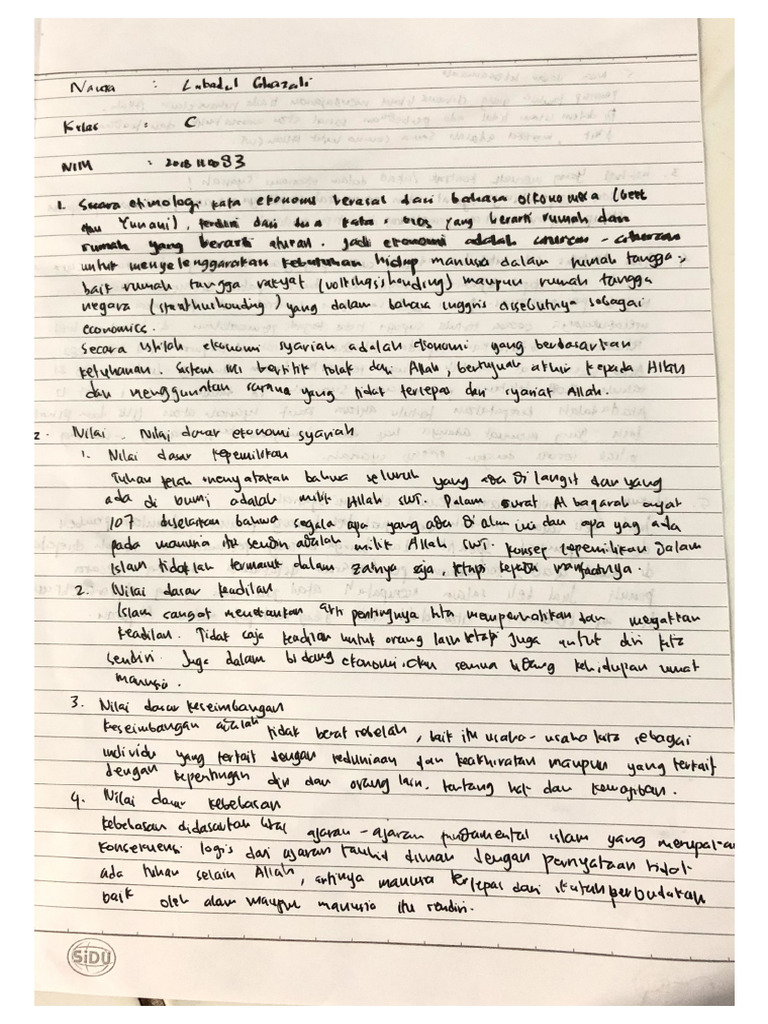 Nama : Lubadul Ghazali
Kelas : C
NIM : 2018110083
1. Secara etimologi kata ekonomi berasal dari bahasa oikonomika (Greek
atau Yunani), terdiri dari dua kata, oios yang berarti rumah dan
rumah yang berarti aturan. Jadi ekonomi adalah aturan - aturan
untuk menyelenggarakan kebutuhan hidup manusia dalam rumah tangga,
baik rumah tangga rakyat (volkhgishouding) maupun rumah tangga
negara (staathuishouding) yang dalam bahasa inggris disebutnya sebagai
economics.
Secara istilah ekonomi syariah adalah ekonomi yang berdasarkan
ketuhanan. Sistem ini bertitik tolak dari Allah, bertujuan akhir kepada Allah
dan menggunakan sarana yang tidak terlepas dari syariat Allah.
2. Nilai - Nilai dasar ekonomi syariah
1. Nilai dasar kepemilikan
Tuhan telah menyatakan bahwa seluruh yang ada di langit dan yang
ada di bumi adalah milik Allah swt. Dalam surat Al baqarah ayat
107 dijelaskan bahwa segala apa yang ada di alam ini dan apa yag ada
pada manusia itu sendiri adalah milik Allah swt. konsep kepemilikan dalam
Islam tidaklah termasuk dalam zatnya saja, tetapi kepada manfaatnya.
2. Nilai dasar keadilan
Islam sangat menekankan arti pentingnya kita memperhatikan dan menegakkan
keadilan. Tidak saja keadilan untuk orang lain tetapi juga untuk diri kita
sendiri. Juga dalam bidang ekonomi dan semua bidang kehidupan umat
manusia.
3. Nilai dasar keseimbangan
keseimbangan adalah tidak berat sebelah, baik itu usaha - usaha kita sebagai
individu yang terkait dengan keduniaan dan keakhiratan maupun yang terkait
dengan kepentingan diri dan orang lain, tentang hak dan kewajiban.
4. Nilai dasar kebebasan
kebebasan didasarkan atas ajaran - ajaran fundamental islam yang merupakan
konsekuensi logis dari ajaran tauhid dimana dengan pernyataan tidak
ada tuhan selain Allah, artinya manusia terlepas dari ikatan perbudakan
baik oleh alam maupun manusia itu sendiri.
SiDU